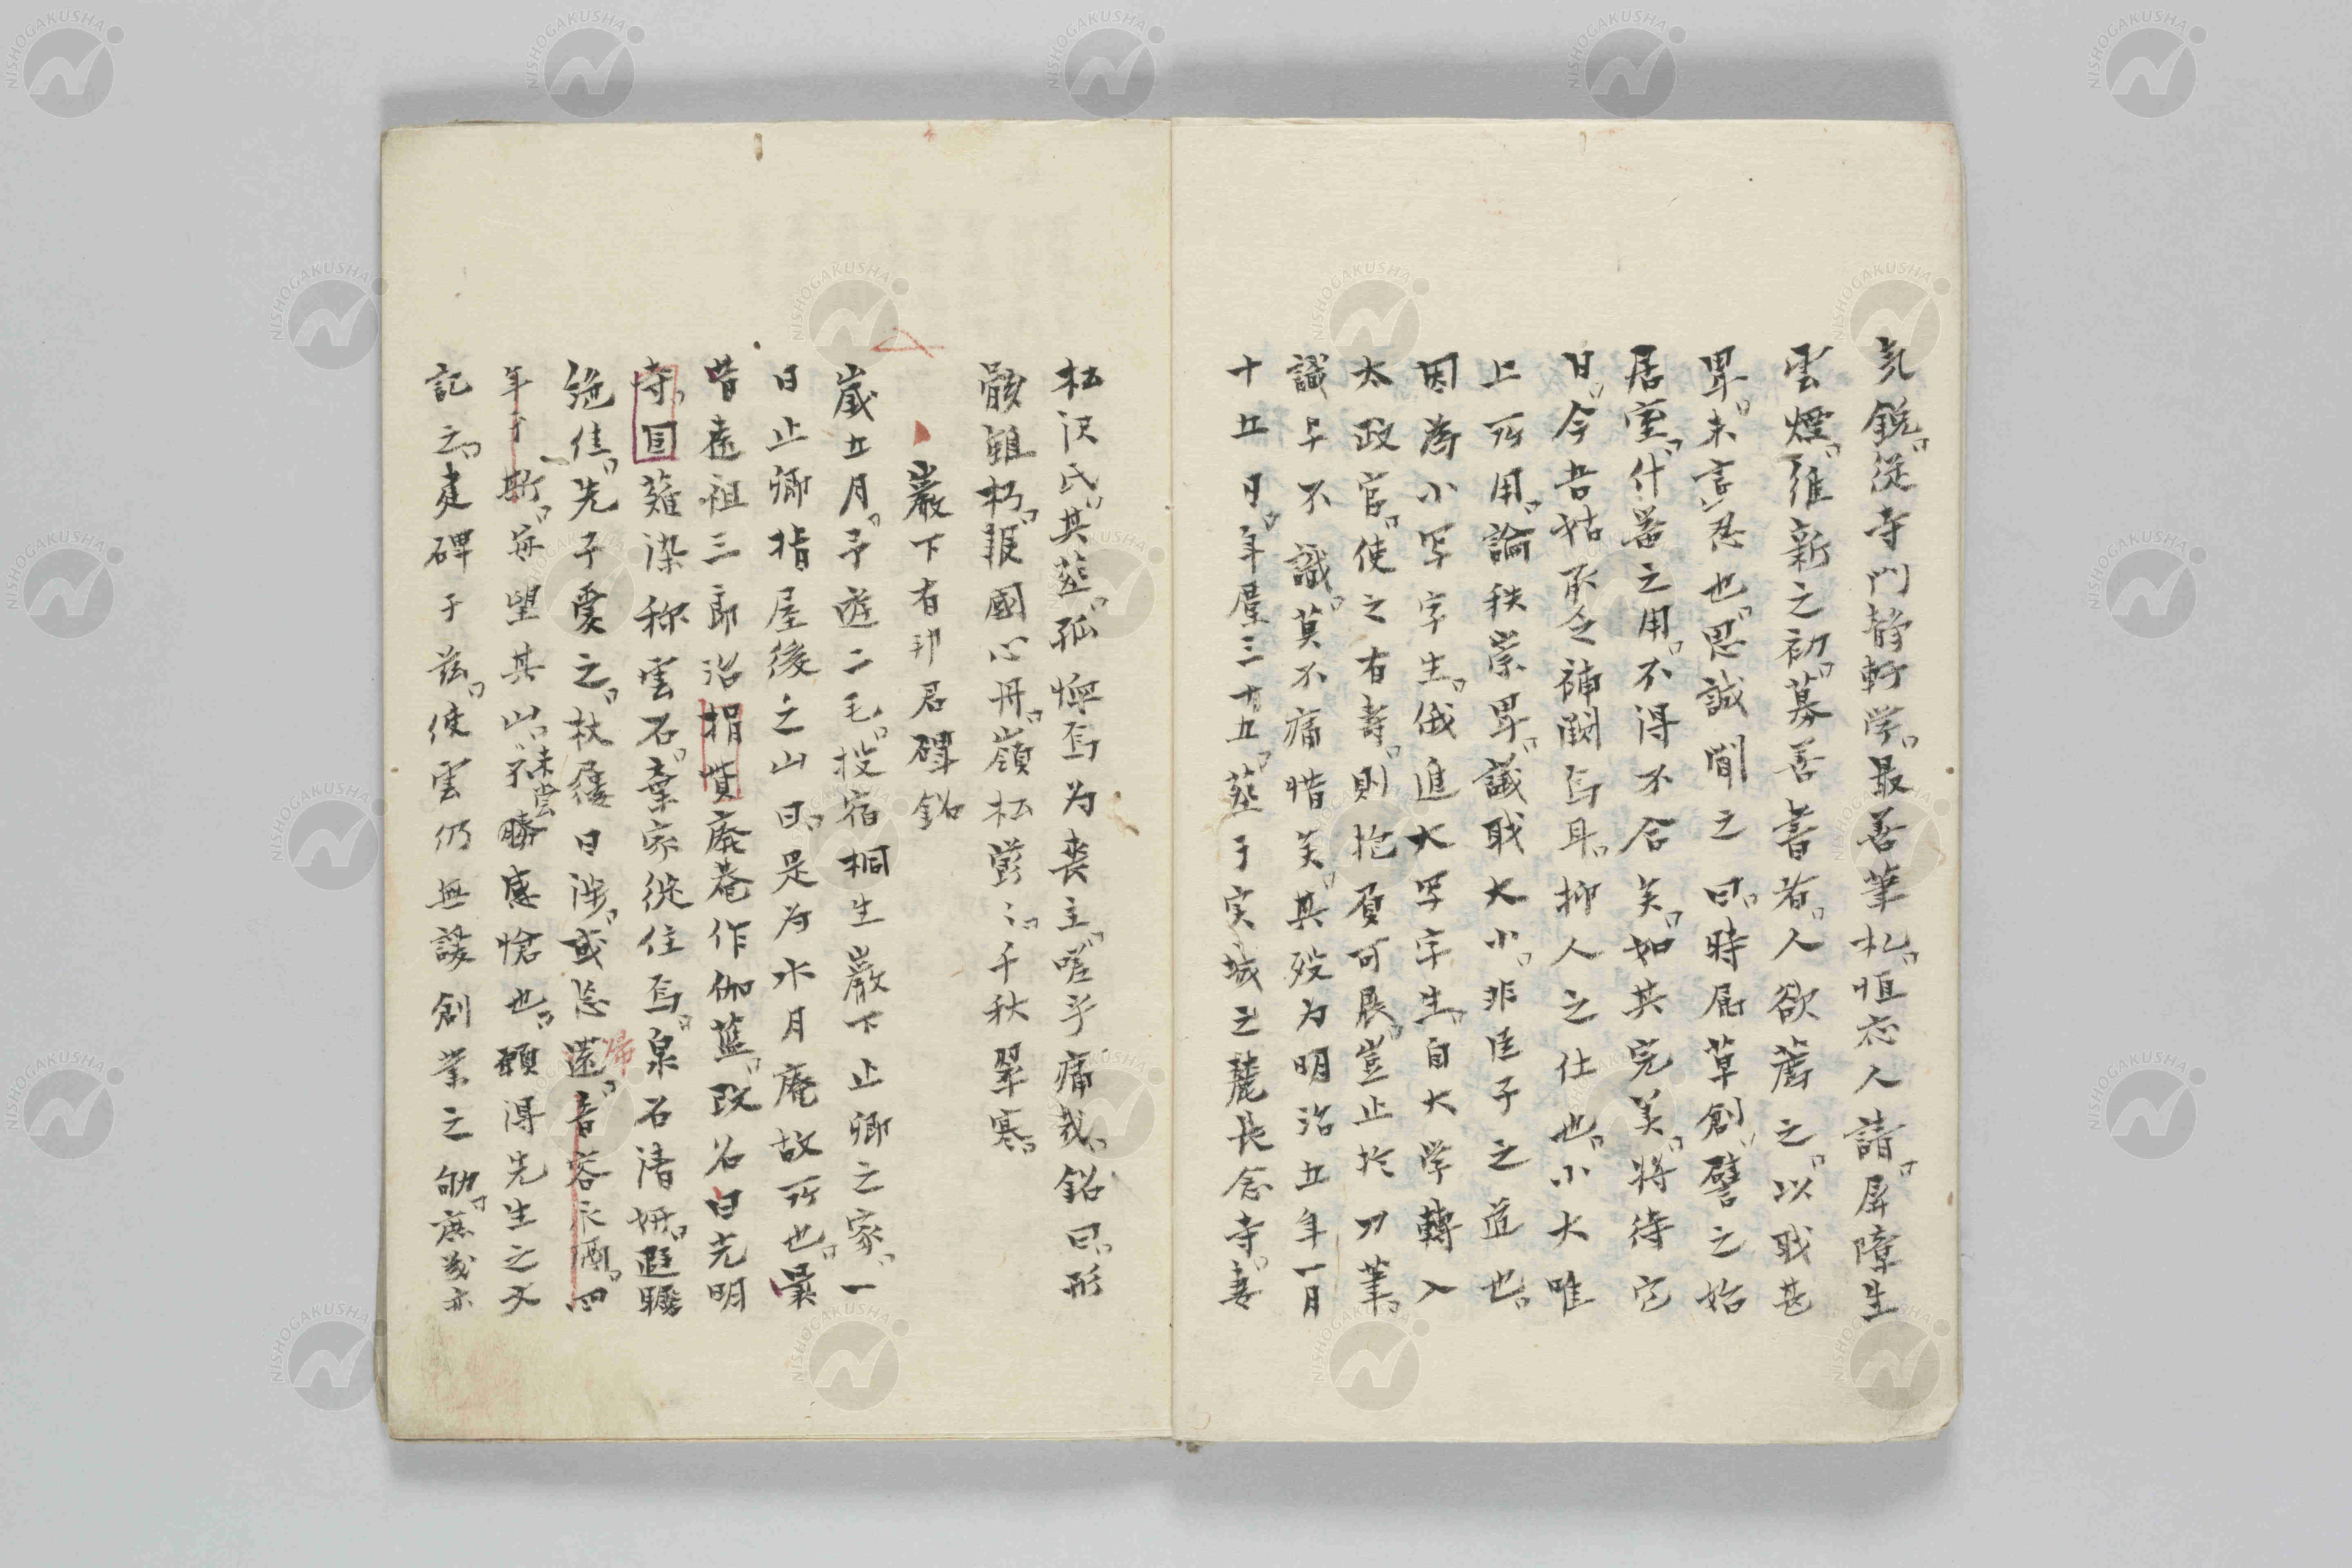 気鋭従寺門静軒学最善筆札恒応人請屏障生
雲煙維新之初募善書者人欲薦之以職甚
卑未言忍也思誠聞之曰時属草創譬之始
居室什器之用不得不合美如其完美将待它
日今吾姑承令補闕焉耳抑人之仕也小大唯
上所用論秩崇卑議職大小非臣子之道也
因為小写字生俄進大写字生自大学転入
太政官使之有寿則抱負可展豈止於刀筆
識与不識莫不痛惜美其歿為明治五年一月
十五日年僅三十五葬于実城之麓長念寺妻
松沢氏其葬孤惸焉为喪主嗟乎痛哉銘曰形
骸雖朽報國心丹嶺松鬱〻千秋翠寒
巌下有邦君碑銘
歳五月予遊二毛投宿桐生巌下止卿之家一
日止卿指屋後之山曰是为水月庵故所也曩
昔遠祖三郎治捐貲廃菴作伽藍改名曰光明
寺囙薙染称雲石棄家従住焉泉石清妍遐矚
絶佳先子愛之杖屨日渉或忘還帰音容永隔四
年于斯毎望其山未嘗不勝感愴也願得先生之文
記之建碑于茲使雲仍無諼創業之劬庶幾亦